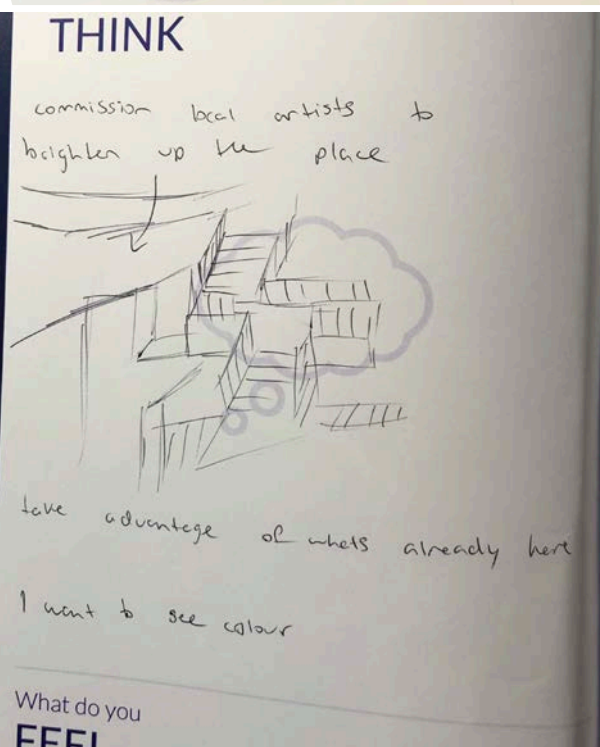 THINK
commission local artists to
brighten up the place
take advantage of whats already here
I want to see colour
What do you
FEEL